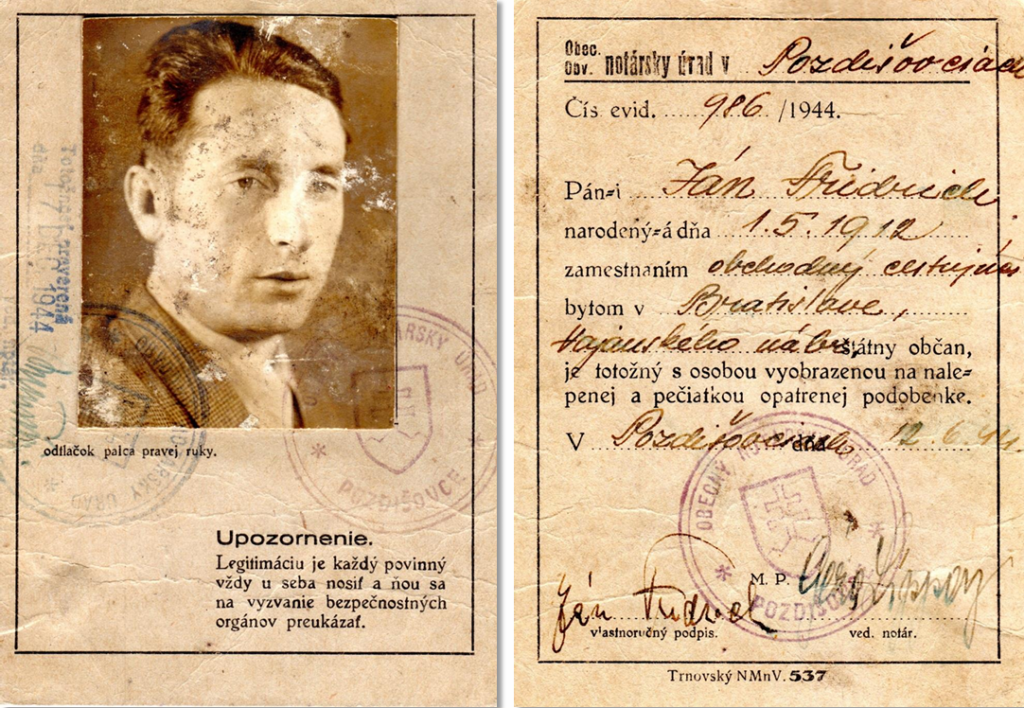 Totožnosť preverená
dňa
1944
OBECNÝ NOTÁRSKY ÚRAD
NOTÁRSKY ÚRAD
POZDIŠOVCE
odtlačok palca pravej ruky.
Upozornenie.
Legitimáciu je každý povinný
vždy u seba nosiť a ňou sa
na vyzvanie bezpečnostných
orgánov preukázať.
Obec.
Obv. notársky úrad v Pozdišovciach
Čís. evid. 986 /1944.
Pán-i Ján Fridrich
narodený-á dňa 1.5.1912
zamestnaním obchodný cestujúci
bytom v Bratislave,
Vajanského nábr. štátny občan,
je totožný s osobou vyobrazenou na nale-
penej a pečiatkou opatrenej podobenke.
V Pozdišovciach dňa 12.6.44.
OBECNÝ NOTÁRSKY ÚRAD
POZDIŠOVCE
M. P.
Ján Fridrich
vlastnoručný podpis. ved. notár.
Trnovský NMnV. 537